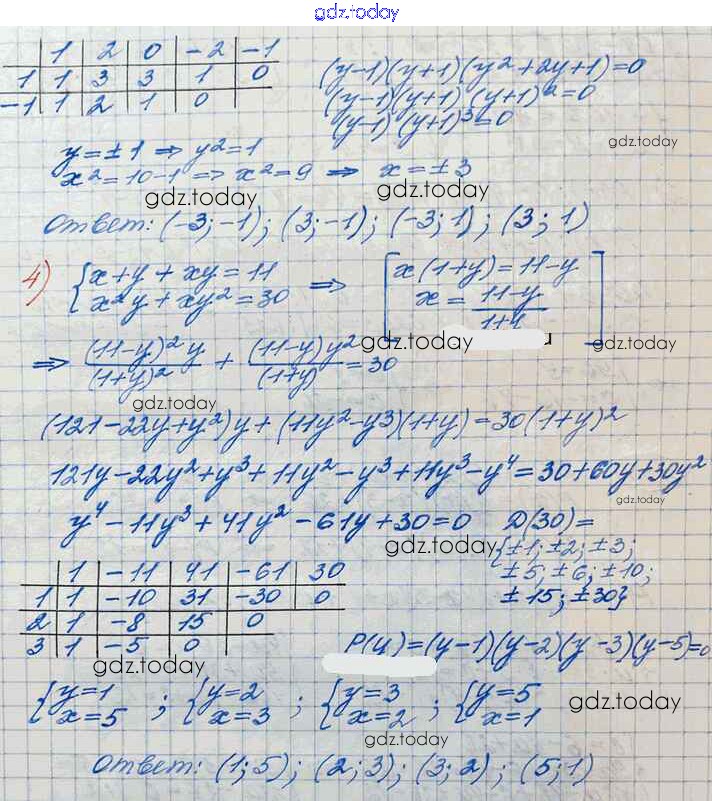 gdz.today
| 1 | 2 | 0 | -2 | -1
1 | 1 | 3 | 3 | 1 | 0
-1 | 1 | 2 | 1 | 0
(y-1)(y+1)(y²+2y+1)=0
(y-1)(y+1)(y+1)²=0
(y-1)(y+1)³=0
gdz.today
y=±1 ⇒ y²=1
x²=10-1 ⇒ x²=9 ⇒ x=±3
gdz.today
gdz.today
Ответ: (-3;-1); (3;-1); (-3;1); (3;1)
4) {x+y+xy=11 ⇒ [x(1+y)=11-y]
{x²y+xy²=30 [x=(11-y)/(1+y)]
gdz.today
gdz.today
⇒ (11-y)²y/(1+y)² + (11-y)y²/(1+y) = 30
gdz.today
(121-22y+y²)y+(11y²-y3)(1+y)=30(1+y)²
121y-22y²+y³+11y²-y³+11y³-y⁴=30+60y+30y²
gdz.today
y⁴-11y³+41y²-61y+30=0 D(30)=
gdz.today
{±1;±2;±3;
±5;±6;±10;
±15;±30}
| 1 | -11 | 41 | -61 | 30
1 | 1 | -10 | 31 | -30 | 0
2 | 1 | -8 | 15 | 0
3 | 1 | -5 | 0
P(y)=(y-1)(y-2)(y-3)(y-5)=0
gdz.today
{y=1 ; {y=2 ; {y=3 ; {y=5
{x=5 {x=3 {x=2 {x=1
gdz.today
gdz.today
Ответ: (1;5); (2;3); (3;2); (5;1)